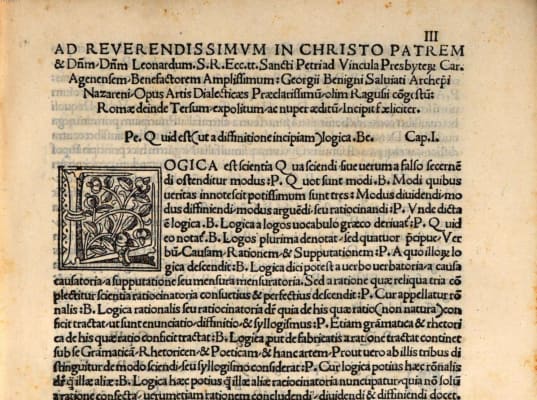 III
AD REVERENDISSIMVM IN CHRISTO PATREM
& Dñm·Dñm Leonardum·S·R·Ecc·tt·Sancti Petri ad Vincula Presbyteꝝ Car·
Agenensem·Benefactorem Amplissimum: Georgii Benigni Saluiati Archep̄i
Nazareni·Opus Artis Dialecticæs Præclarissimũ·olim Ragusii cõgestũ:
Romæ deinde Tersum·expolitum·ac nuper æditũ·Incipit fæliciter.
Pe. Q uid est(ut a diffinitione incipiam)logica. Be. Cap.I.
LOGICA est scientia Q ua sciendi·siue uerum a falso secernẽ
di ostenditur modus: P. Q uot sunt modi. B. Modi quibus
ueritas innotescit potissimum sunt tres: Modus diuidendi·mo
dus diffiniendi·modus arguẽdi·seu ratiocinandi: P. Vnde dicta
ẽ logica. B. Logica a logos uocabulo græco deriuat᷑: P. Q uid
eo notat᷑. B. Logos plurima denotat·sed quatuor p̃cipue: Ver
bũ·Causam·Rationem·& Supputationem: P. A quo illoꝝ lo
gica descendit: B. Logica dici potest a uerbo uerbatoria·a causa
causatoria·a supputatione seu mensura mensuratoria. Sed a ratione quæ reliqua tria cõ
plectitur scientia ratiocinatoria consuetius & perfectius descendit: P. Cur appellatur rõ
nalis: B. Logica rationalis seu ratiocinatoria dr̃ quia de his quæ ratio(non natura)con
ficit tractat·ut sunt enunciatio·diffinitio·& syllogismus: P. Etiam grãmatica & rhetori
ca de his quæ ratio conficit tractat: B. Logica put de fabricatis a ratione tractat continet
sub se Gramaticã·Rhetoricen·& Poeticam·& hanc artem·Prout uero ab illis tribus di
stinguitur de modo sciendi·seu syllogismo considerat: P. Cur logica potius hæc rõnalis
dr̃ q̃ illæ aliæ: B. Logica hæc potius q̃ illæ aliæ ratiocinatoria nuncupatur·quia nõ solũ
a ratione confecta·uerumetiam rationem concludendi·diuidendi & diffiniendi docet.